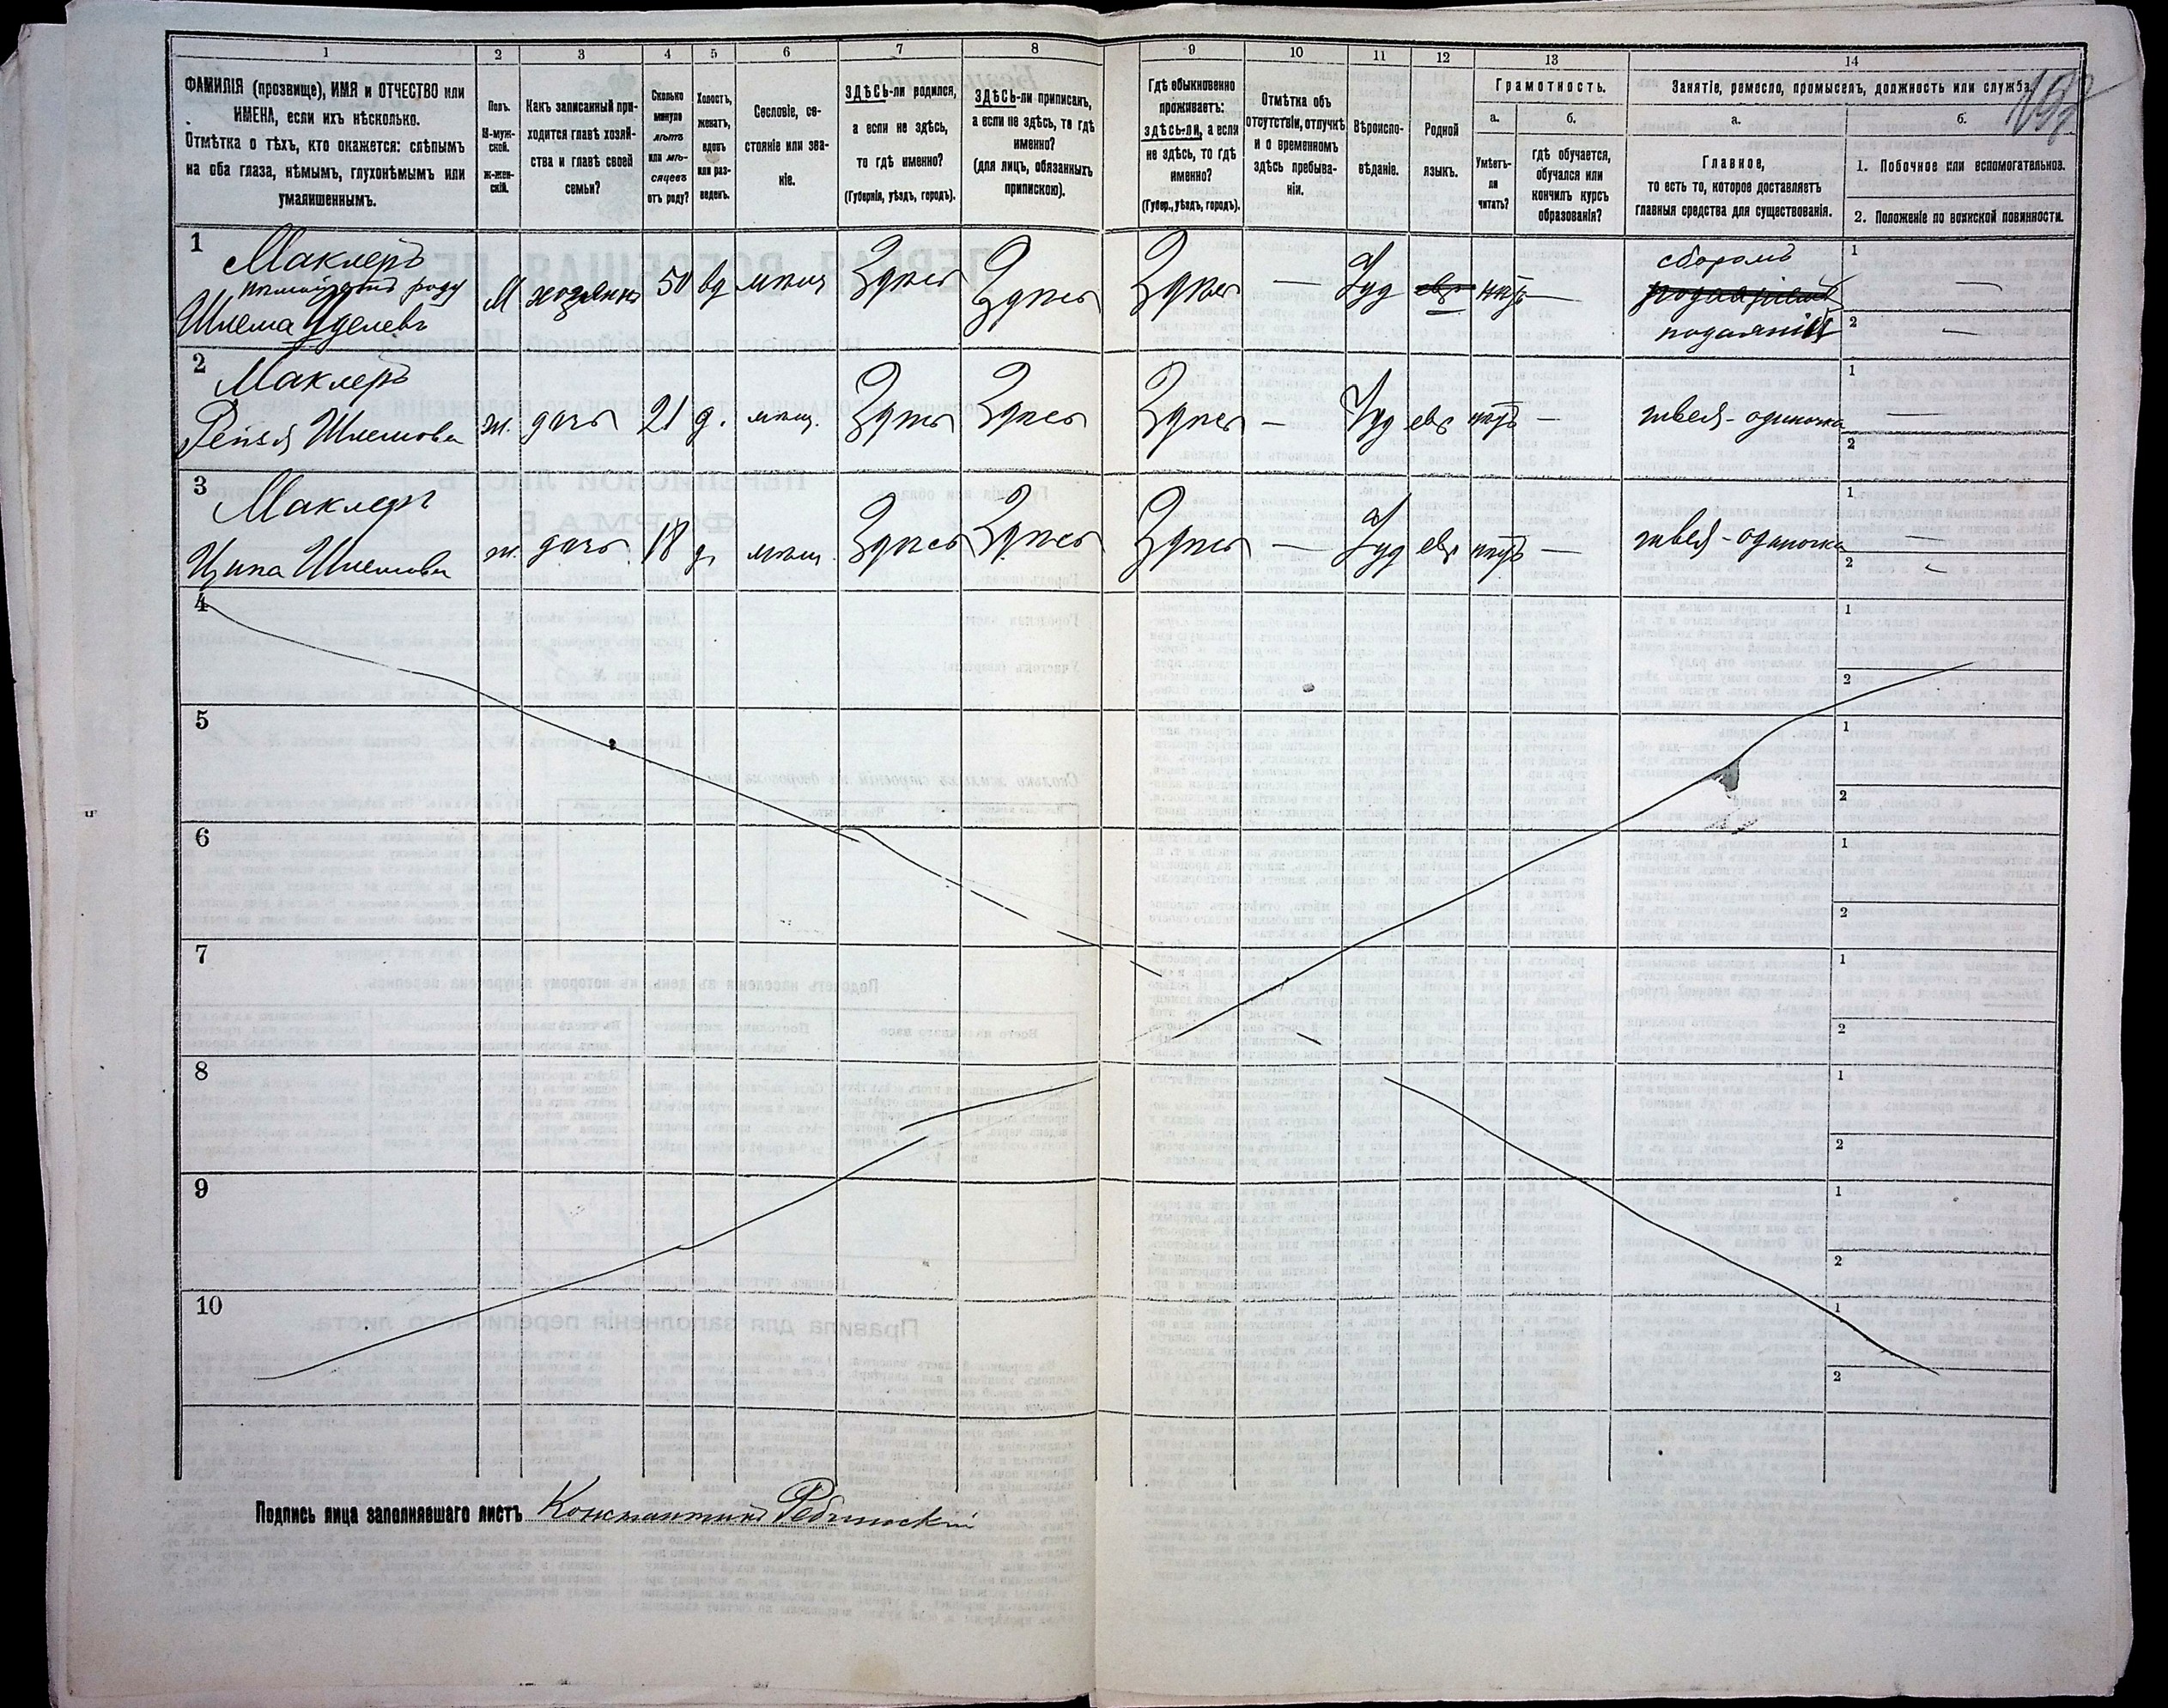 1 2 3 4 5 6 7 8 9 10 11 12 13 14
ФАМИЛІЯ (прозвище), ИМЯ и ОТЧЕСТВО или
ИМЕНА, если ихъ нѣсколько.
Отмѣтка о тѣхъ, кто окажется: слѣпымъ
на оба глаза, нѣмымъ, глухонѣмымъ или
умалишеннымъ.
Полъ.
М-муж-
ской.
Ж-жен-
скій.
Какъ записанный при-
ходится главѣ хозяй-
ства и главѣ своей
семьи?
Сколько
минуло
лѣтъ
или мѣ-
сяцевъ
отъ роду?
Холостъ,
женатъ,
вдовъ
или раз-
веденъ.
Сословіе, со-
стояніе или зва-
ніе.
ЗДѢСЬ-ли родился,
а если не здѣсь,
то гдѣ именно?
(Губернія, уѣздъ, городъ).
ЗДѢСЬ-ли приписанъ,
а если не здѣсь, то гдѣ
именно?
(для лицъ, обязанныхъ
припискою).
Гдѣ обыкновенно
проживаетъ:
здѣсь-ли, а если
не здѣсь, то гдѣ
именно?
(Губер., уѣздъ, городъ).
Отмѣтка объ
отсутствіи, отлучкѣ
и о временномъ
здѣсь пребыва-
ніи.
Вѣроиспо-
вѣданіе.
Родной
языкъ.
Грамотность.
а.
Умѣетъ-
ли
читать?
б.
гдѣ обучается,
обучался или
кончилъ курсъ
образованія?
Занятіе, ремесло, промыселъ, должность или служба.
а.
Главное,
то есть то, которое доставляетъ
главныя средства для существованія.
б.
1. Побочное или вспомогательное.
2. Положеніе по воинской повинности.
1 Маклеръ
Шлема М хозяинъ 50 вд мѣщ Здѣсь Здѣсь Здѣсь — Іуд евр нѣтъ — сборомъ
подаяній
1 —
2 —
2 Маклеръ
Рейзя Шлемова ж. дочь 21 д. мѣщ. Здѣсь Здѣсь Здѣсь — Іуд евр нѣтъ — швея-одиночка
1 —
2
3 Маклеръ
Ципа Шлемова ж. дочь 18 д. мѣщ. Здѣсь Здѣсь Здѣсь — Іуд евр нѣтъ — швея-одиночка
1 —
2 —
4 1
2
5 1
2
6 1
2
7 1
2
8 1
2
9 1
2
10 1
2
Подпись лица заполнявшаго листъ Константинъ